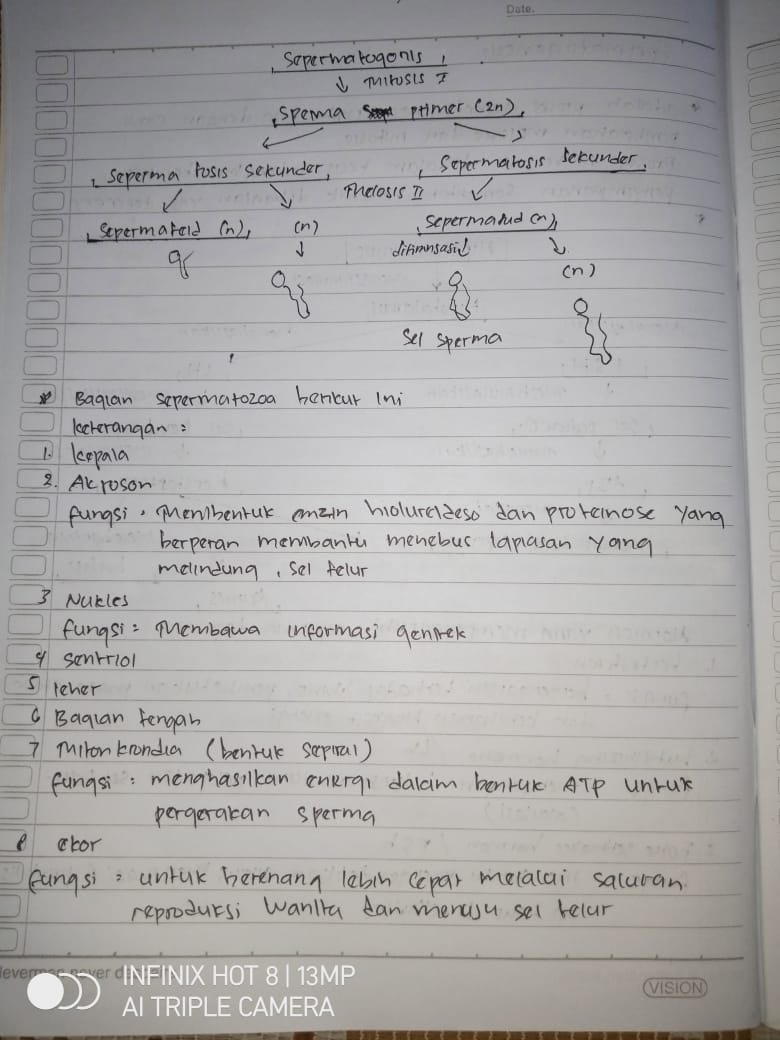 Date.
Sepermatogonis
↓ Mitosis I
Sperma primer (2n)
Seperma tosis sekunder, Sepermatosis Sekunder
Meiosis II
Sepermateid (n), (n) Sepermatid (n),
(n)
Sel sperma
* Bagian sepermatozoa berikut ini
keterangan :
1. kepala
2. Akroson
fungsi : Membentuk enzin hiolureldeso dan proteinose yang
berperan membantu menebus lapiasan yang
melindung, sel telur
3 Nukles
fungsi : Membawa informasi genitek
4 sentriol
5 leher
6 Bagian tengah
7 Mitonkrondia (bentuk sepiral)
fungsi : menghasilkan energi dalam bentuk ATP untuk
pergerakan sperma
8 ekor
fungsi : untuk berenang lebih cepat melalai saluran
reproduksi wanita dan menuju sel telur
VISION
INFINIX HOT 8 | 13MP
AI TRIPLE CAMERA